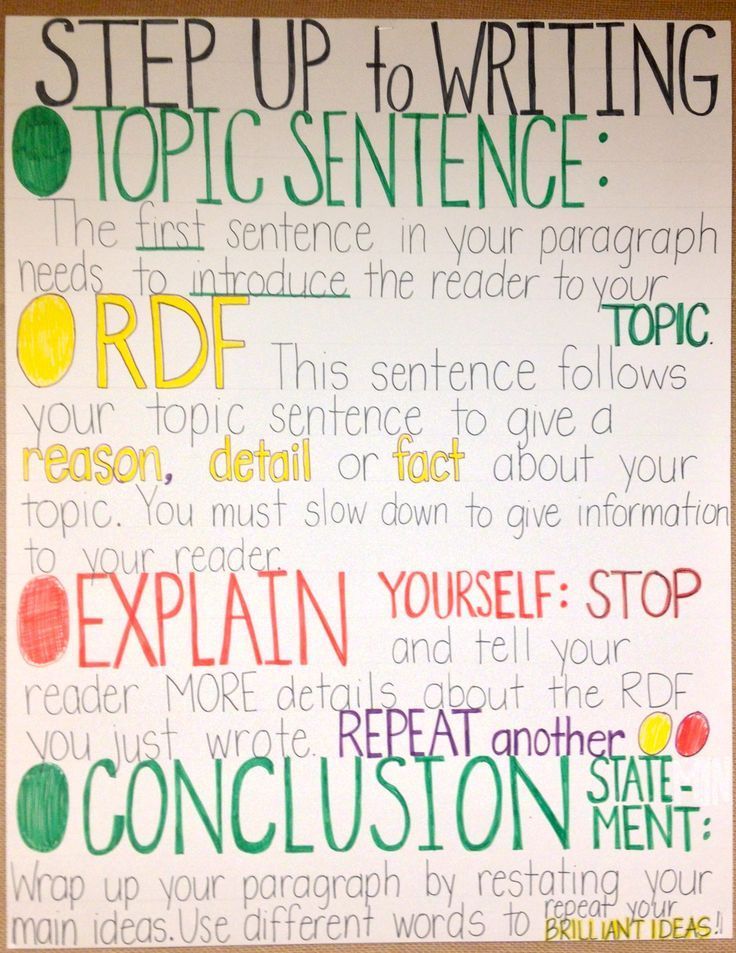 STEP UP to WRITING
TOPIC SENTENCE:
The first sentence in your paragraph
needs to introduce the reader to your
TOPIC.
RDF This sentence follows
your topic sentence to give a
reason, detail or fact about your
topic. You must slow down to give information
to your reader.
EXPLAIN YOURSELF: STOP
and tell your
reader MORE details about the RDF
you just wrote. REPEAT another
CONCLUSION STATE-
MENT:
Wrap up your paragraph by restating your
main ideas. Use different words to repeat your
BRILLIANT IDEAS!